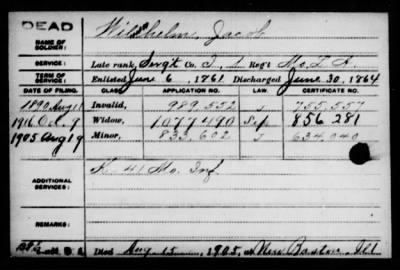 DEAD
NAME OF SOLDIER:
Wilhelm, Jacob
SERVICE:
Late rank, Serg't Co. I, 1 Reg't Mo. L A.
TERM OF SERVICE:
Enlisted June 6, 1861 Discharged June 30, 1864
DATE OF FILING. CLASS. APPLICATION NO. LAW. CERTIFICATE NO.
1890 Aug Invalid, 989,552 J 755,557
1916 Oct. 9 Widow, 1077490 Sep 856281
1905 Aug 19 Minor, 833,602 J 634,040
ADDITIONAL SERVICES:
K. 41 Mo. Inf.
REMARKS:
Died Aug. 15, 1905, at New Boston, Ill